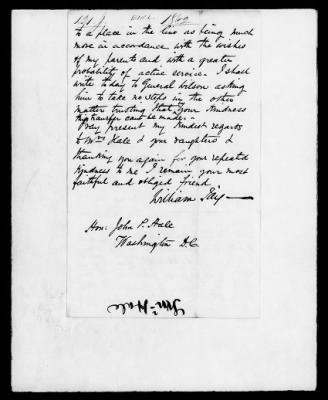 to a place in the line as being much
more in accordance with the wishes
of my parents and with a greater
probability of active service. I shall
write today to General Wilson asking
him to take no steps in the other
matter trusting that your kindness
this transfer can't be made.
Pray present my kindest regards
to Mrs Hale & your daughters &
thanking you again for your repeated
kindness to me I remain your most
faithful and obliged friend
William
Hon: John P. Hale
Washington D.C.
Hale